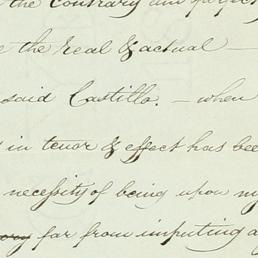 the Contrary am perfect
the real & actual —
said Castillo. — when
in tenor & effect has bee
necessity of being upon my
far from imputing a